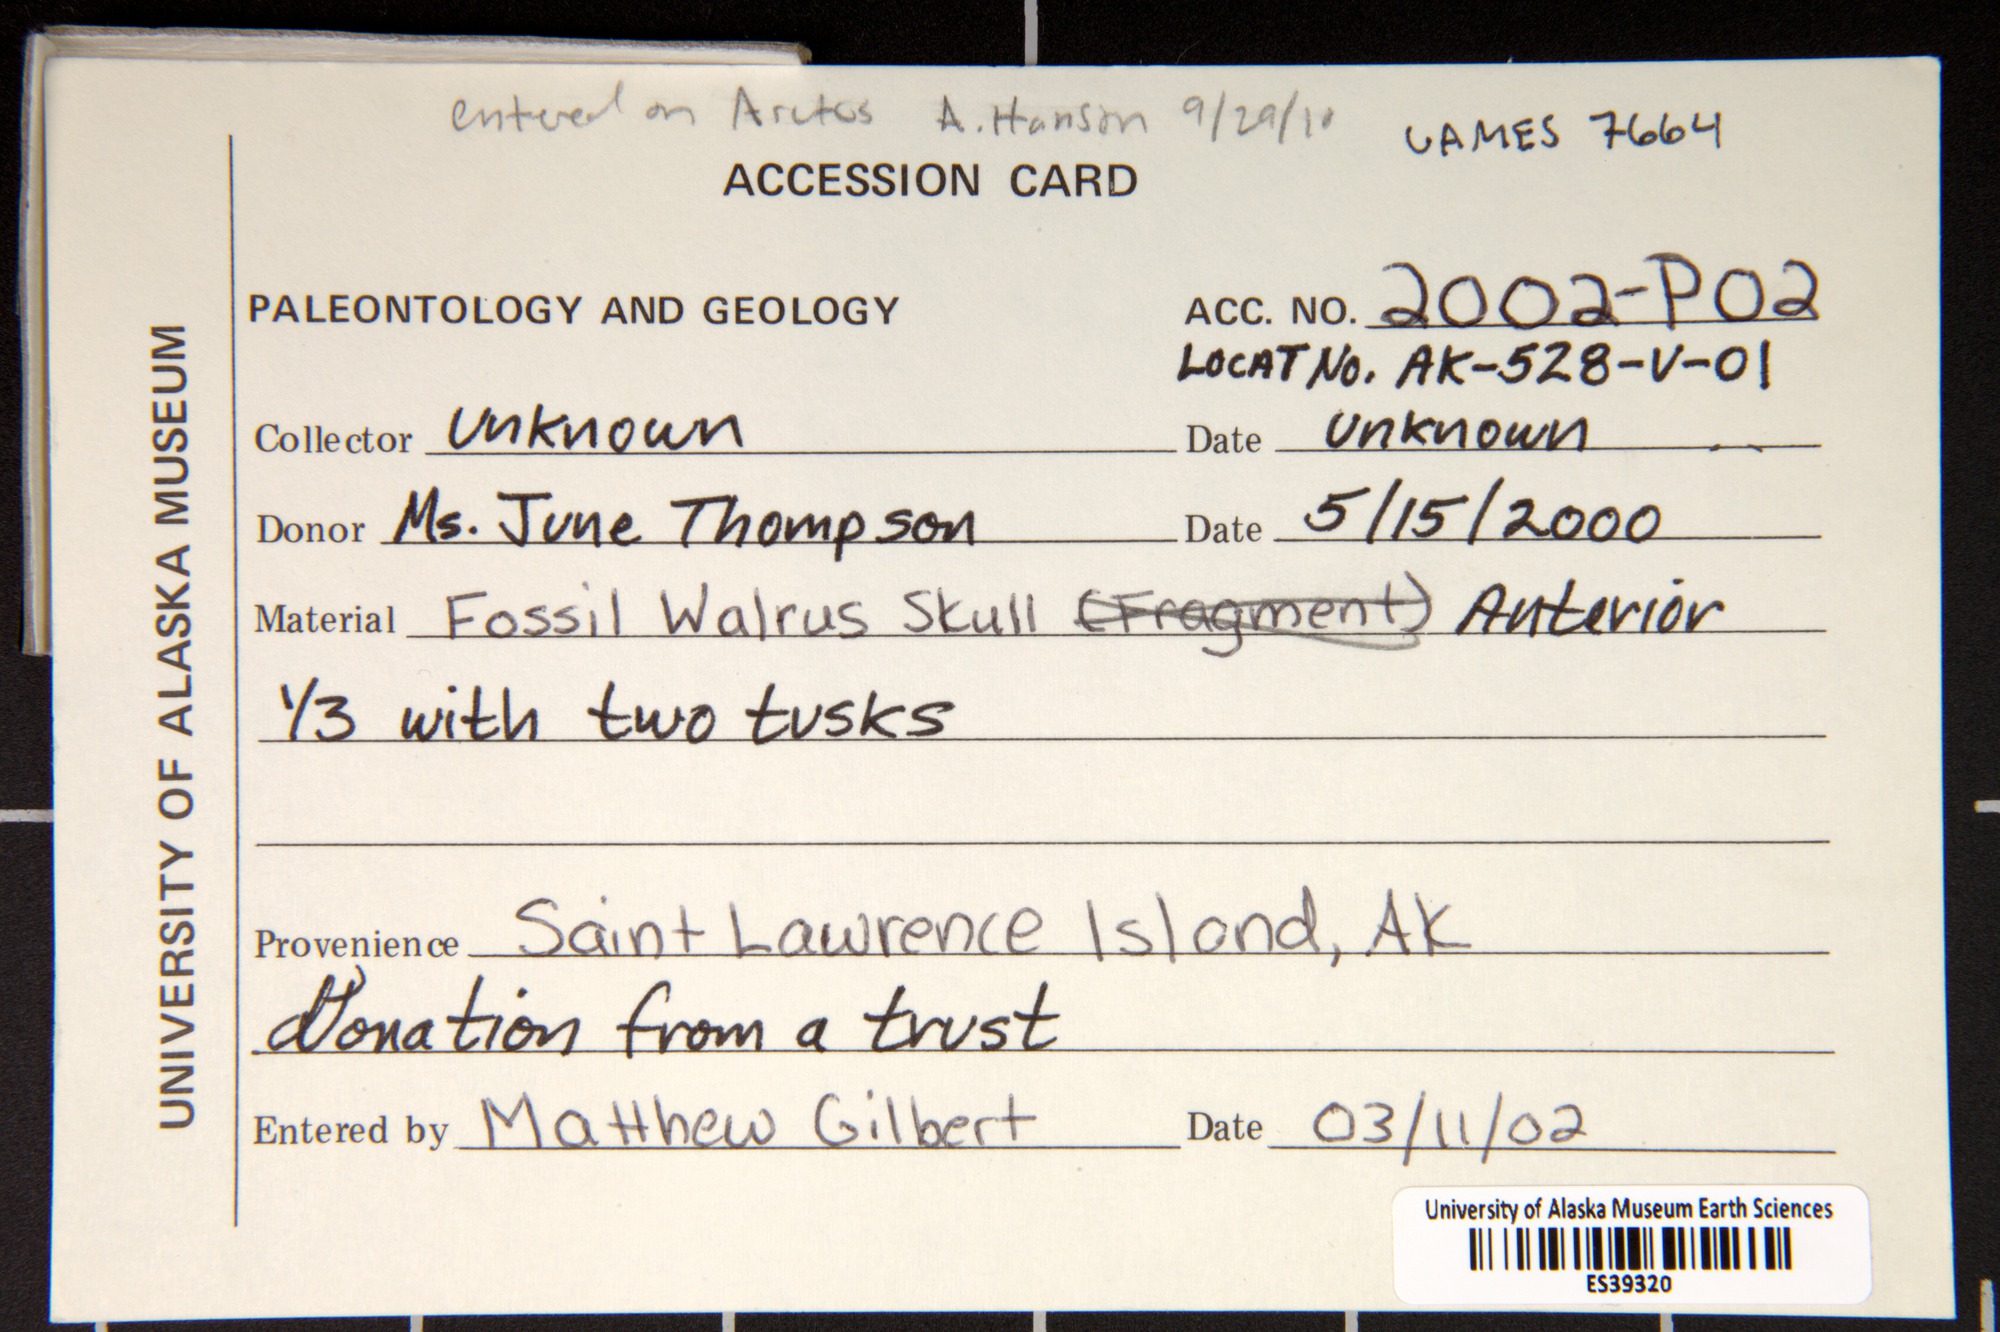 entered on Arctos A. Hanson 9/29/10
UAMES 7664
ACCESSION CARD
UNIVERSITY OF ALASKA MUSEUM
PALEONTOLOGY AND GEOLOGY ACC. NO. 2002-P02
LOCAT No. AK-528-V-01
Collector Unknown Date Unknown
Donor Ms. June Thompson Date 5/15/2000
Material Fossil Walrus Skull (Fragment) Anterior
1/3 with two tusks
Provenience Saint Lawrence Island, AK
Donation from a trust
Entered by Matthew Gilbert Date 03/11/02
University of Alaska Museum Earth Sciences
ES39320